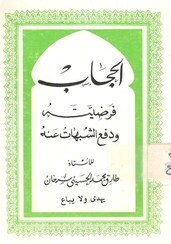 الحجاب
فرضيته
ودفع الشبهات عنه
للأستاذ
طارق محمد الحسيني سرحان
يهدى ولا يباع